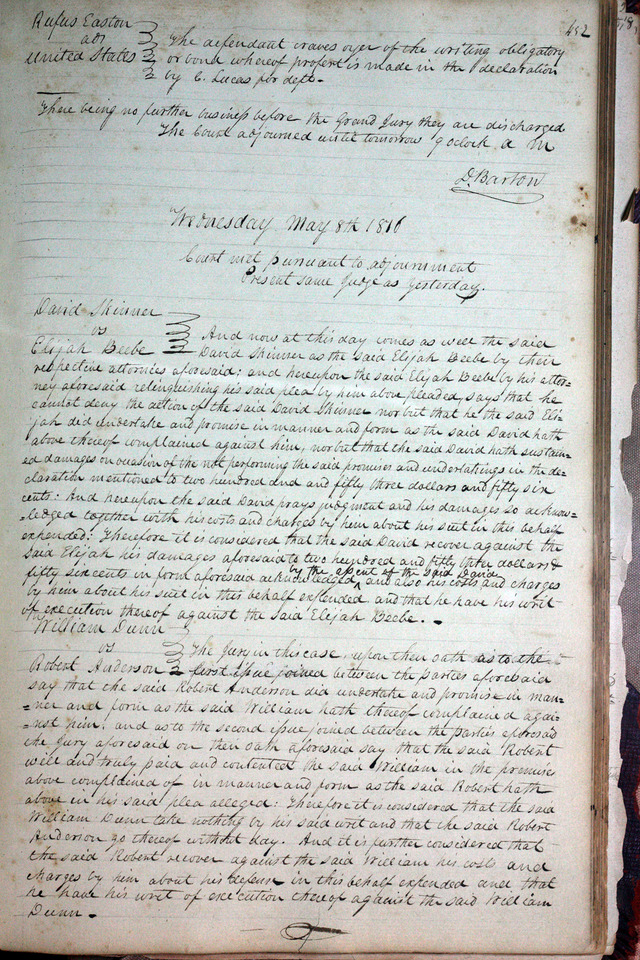 452
Rufus Easton
ads
United States
The defendant craves oyer of the writing obligatory
or bond whereof profert is made in the declaration
by C. Lucas per deft.
There being no further business before the Grand Jury they are discharged
The Court adjourned until tomorrow 9 oclock a m
D. Barton
Wednesday May 8th 1816
Court met pursuant to adjournment
Present same Judge as yesterday.
David Skinner
vs
Elijah Beebe
And now at this day comes as well the said
David Skinner as the said Elijah Beebe by their
respective attornies aforesaid: and hereupon the said Elijah Beebe by his attor=
ney aforesaid relinquishing his said plea by him above pleaded, says that he
cannot deny the action of the said David Skinner nor but that he the said Eli
jah did undertake and promise in manner and form as the said David hath
above thereof complained against him, nor but that the said David hath sustain=
ed damages on occasion of the not performing the said promises and undertakings in the de=
claration mentioned to two hundred and and fifty three dollars and fifty six
cents: And hereupon the said David prays judgment and his damages so acknow=
=ledged together with his costs and charges by him about his suit in this behalf
expended: Therefore it is considered that the said David recover against the
said Elijah his damages aforesaid to two hundred and fifty three dollars &
fifty six cents in form aforesaid acknowledged by the assent of the said David, and also his costs and charges
by him about his suit in this behalf expended and that he have his writ
of execution thereof against the said Elijah Beebe. -
William Dunn
vs
Robert Anderson
The Jury in this case, upon their oath as to the
first issue joined between the parties aforesaid
say that the said Robert Anderson did undertake and promise in man=
=ner and form as the said William hath thereof complained agai=
=nst him: and as to the second issue joined between the parties aforesaid
the Jury aforesaid on their oath aforesaid say that the said Robert
well and truly paid and contented the said William in the premises
above complained of in manner and form as the said Robert hath
above in his said plea alleged: Therefore it is considered that the said
William Dunn take nothing by his said writ and that the said Robert
Anderson go thereof without day. And it is further considered that
the said Robert recover against the said William his costs and
charges by him about his defense in this behalf expended and that
he have his writ of execution thereof against the said William
Dunn -